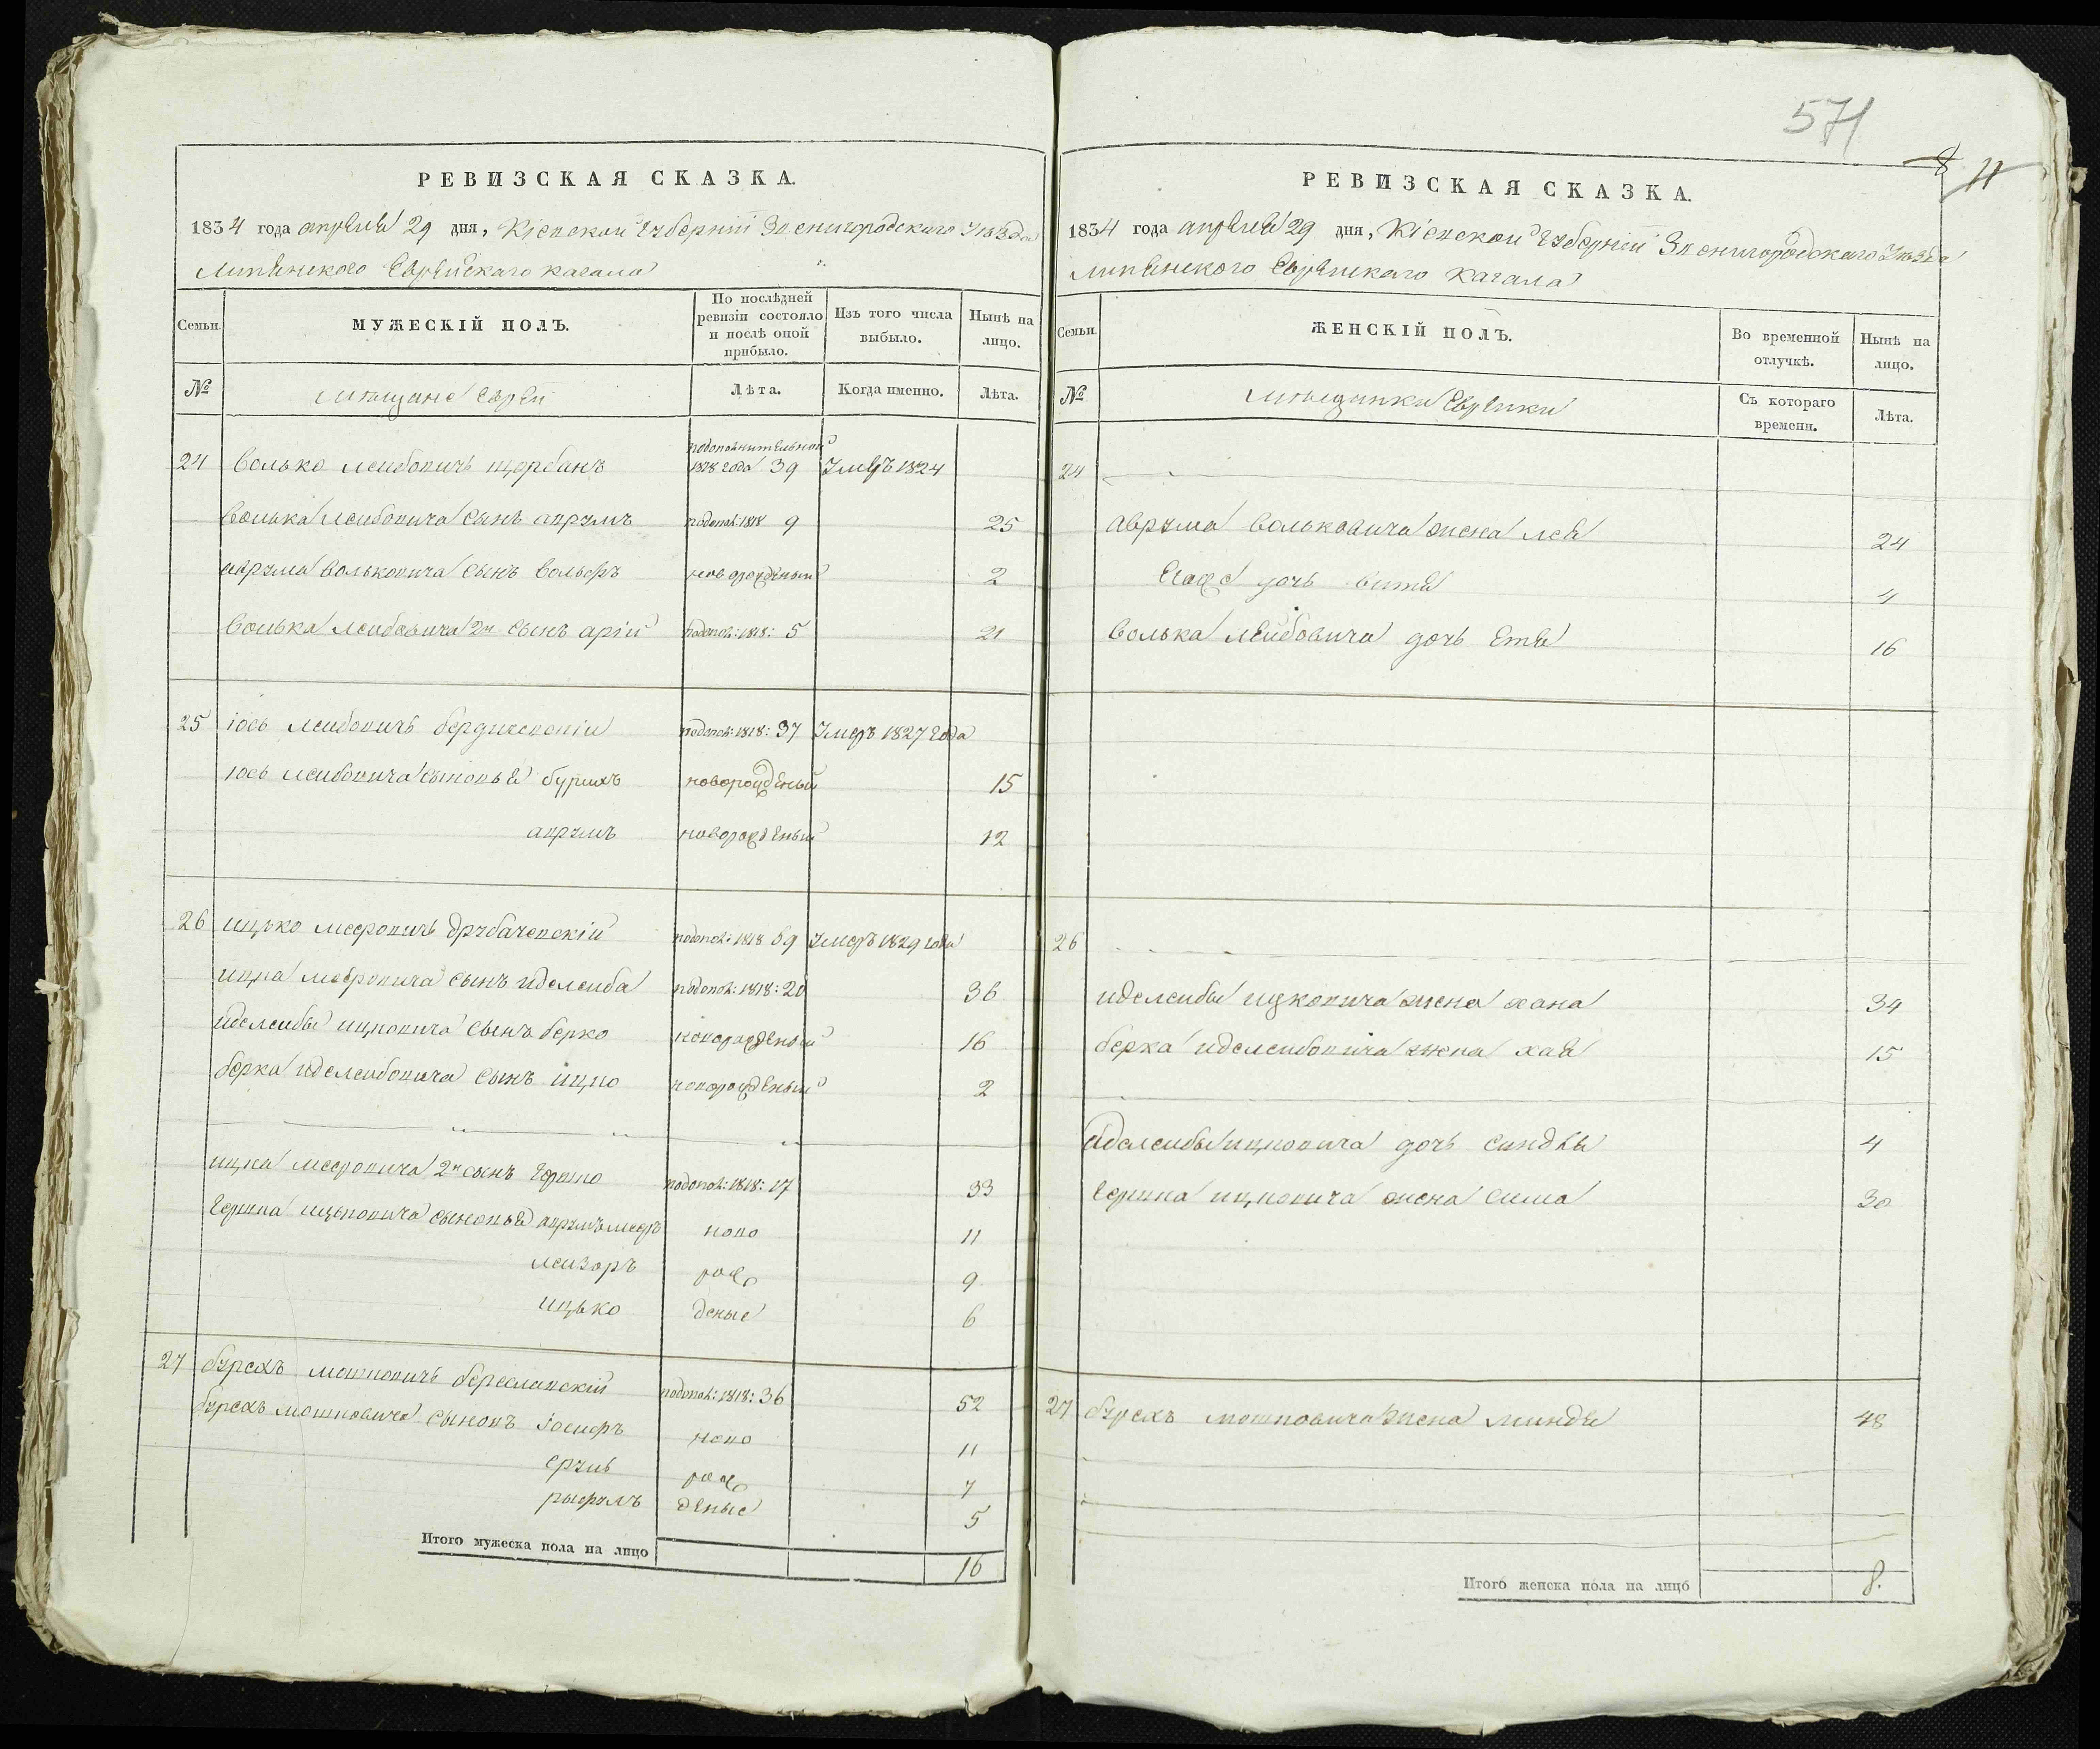 571
8 11
РЕВИЗСКАЯ СКАЗКА.
1834 года апреля 29 дня, Кіевской Губерніи Звенигородскаго Уезда
Еврейскаго кагала
Семьи
МУЖЕСКІЙ ПОЛЪ.
По послѣдней ревизіи состояло и послѣ оной прибыло.
Изъ того числа выбыло.
Нынѣ на лицо.
№
мещане евреи
Лѣта.
Когда именно.
Лѣта.
24 Волько Лейбовичь Щербанъ 1818 года 39 Умеръ 1824
Волька Лейбовича сынъ Аврумъ подопол: 1818 9 25
Аврума Вольковича сынъ Вольфъ новорожденый 2
Волька Лейбовича 2й сынъ Арій подопол: 1818: 5 21
25 Іось Лейбовичь Бердичевскій подопол: 1818: 37 Умеръ 1827 года
Іось Лейбовича сыновья Бурихъ новорожденый 15
Аврумъ новорожденый 12
26 Ицько Мееровичь подопол: 1818 59 Умеръ 1829 года
Ицка Мееровича сынъ Иделейба подопол: 1818: 20 36
Иделейбы Ицковича сынъ Берко новорожденый 16
Берка Иделейбовича сынъ Ицко новорожденый 2
Ицка Мееровича 2й сынъ Гершко подопол: 1818: 17 33
Гершка Ицьковича сыновья Аврумъ Мееръ ново 11
Лейзоръ рож 9
Ицько деные 6
27 Бурехъ Мошковичь Береславскій подопол: 1818: 36 52
Бурехъ Мошковича сыновъ Іосифъ ново 11
Сруль рож 7
деные 5
Итого мужеска пола на лицо 16
РЕВИЗСКАЯ СКАЗКА.
1834 года апреля 29 дня, Кіевской Губерніи Звенигородскаго Уезда
Еврейскаго кагала
Семьи
ЖЕНСКІЙ ПОЛЪ.
Во временной отлучкѣ.
Нынѣ на лицо.
№
мещанки еврейки
Съ котораго времени.
Лѣта.
24
Аврума Вольковича жена Лея 24
дочь 4
Волька Лейбовича дочь Етя 16
26
Иделейбы Ицковича жена Хана 34
Берка Иделейбовича жена Хая 15
Иделейбы Ицковича дочь Синдля 4
Гершка Ицковича жена Сима 30
27 Бурехъ Мошковича жена Миндя 48
Итого женска пола на лицо 8.